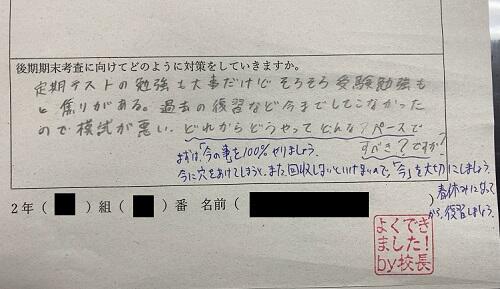 後期期末考査に向けてどのように対策をしていきますか。
定期テストの勉強も大事だけどそろそろ受験勉強も
と焦りがある。過去の復習など今までしてこなかった
ので模試が悪い。どれからどうやってどんな?ペースで
すべき?ですか?
まずは「今の事を100%やりましょう。
今に穴をあけてしまうと、また回収しないといけないので、「今」を大切にしましょう。
春休みになって
から、復習しましょう。
2年( )組( )番 名前( )
よくでき
ました!
by校長